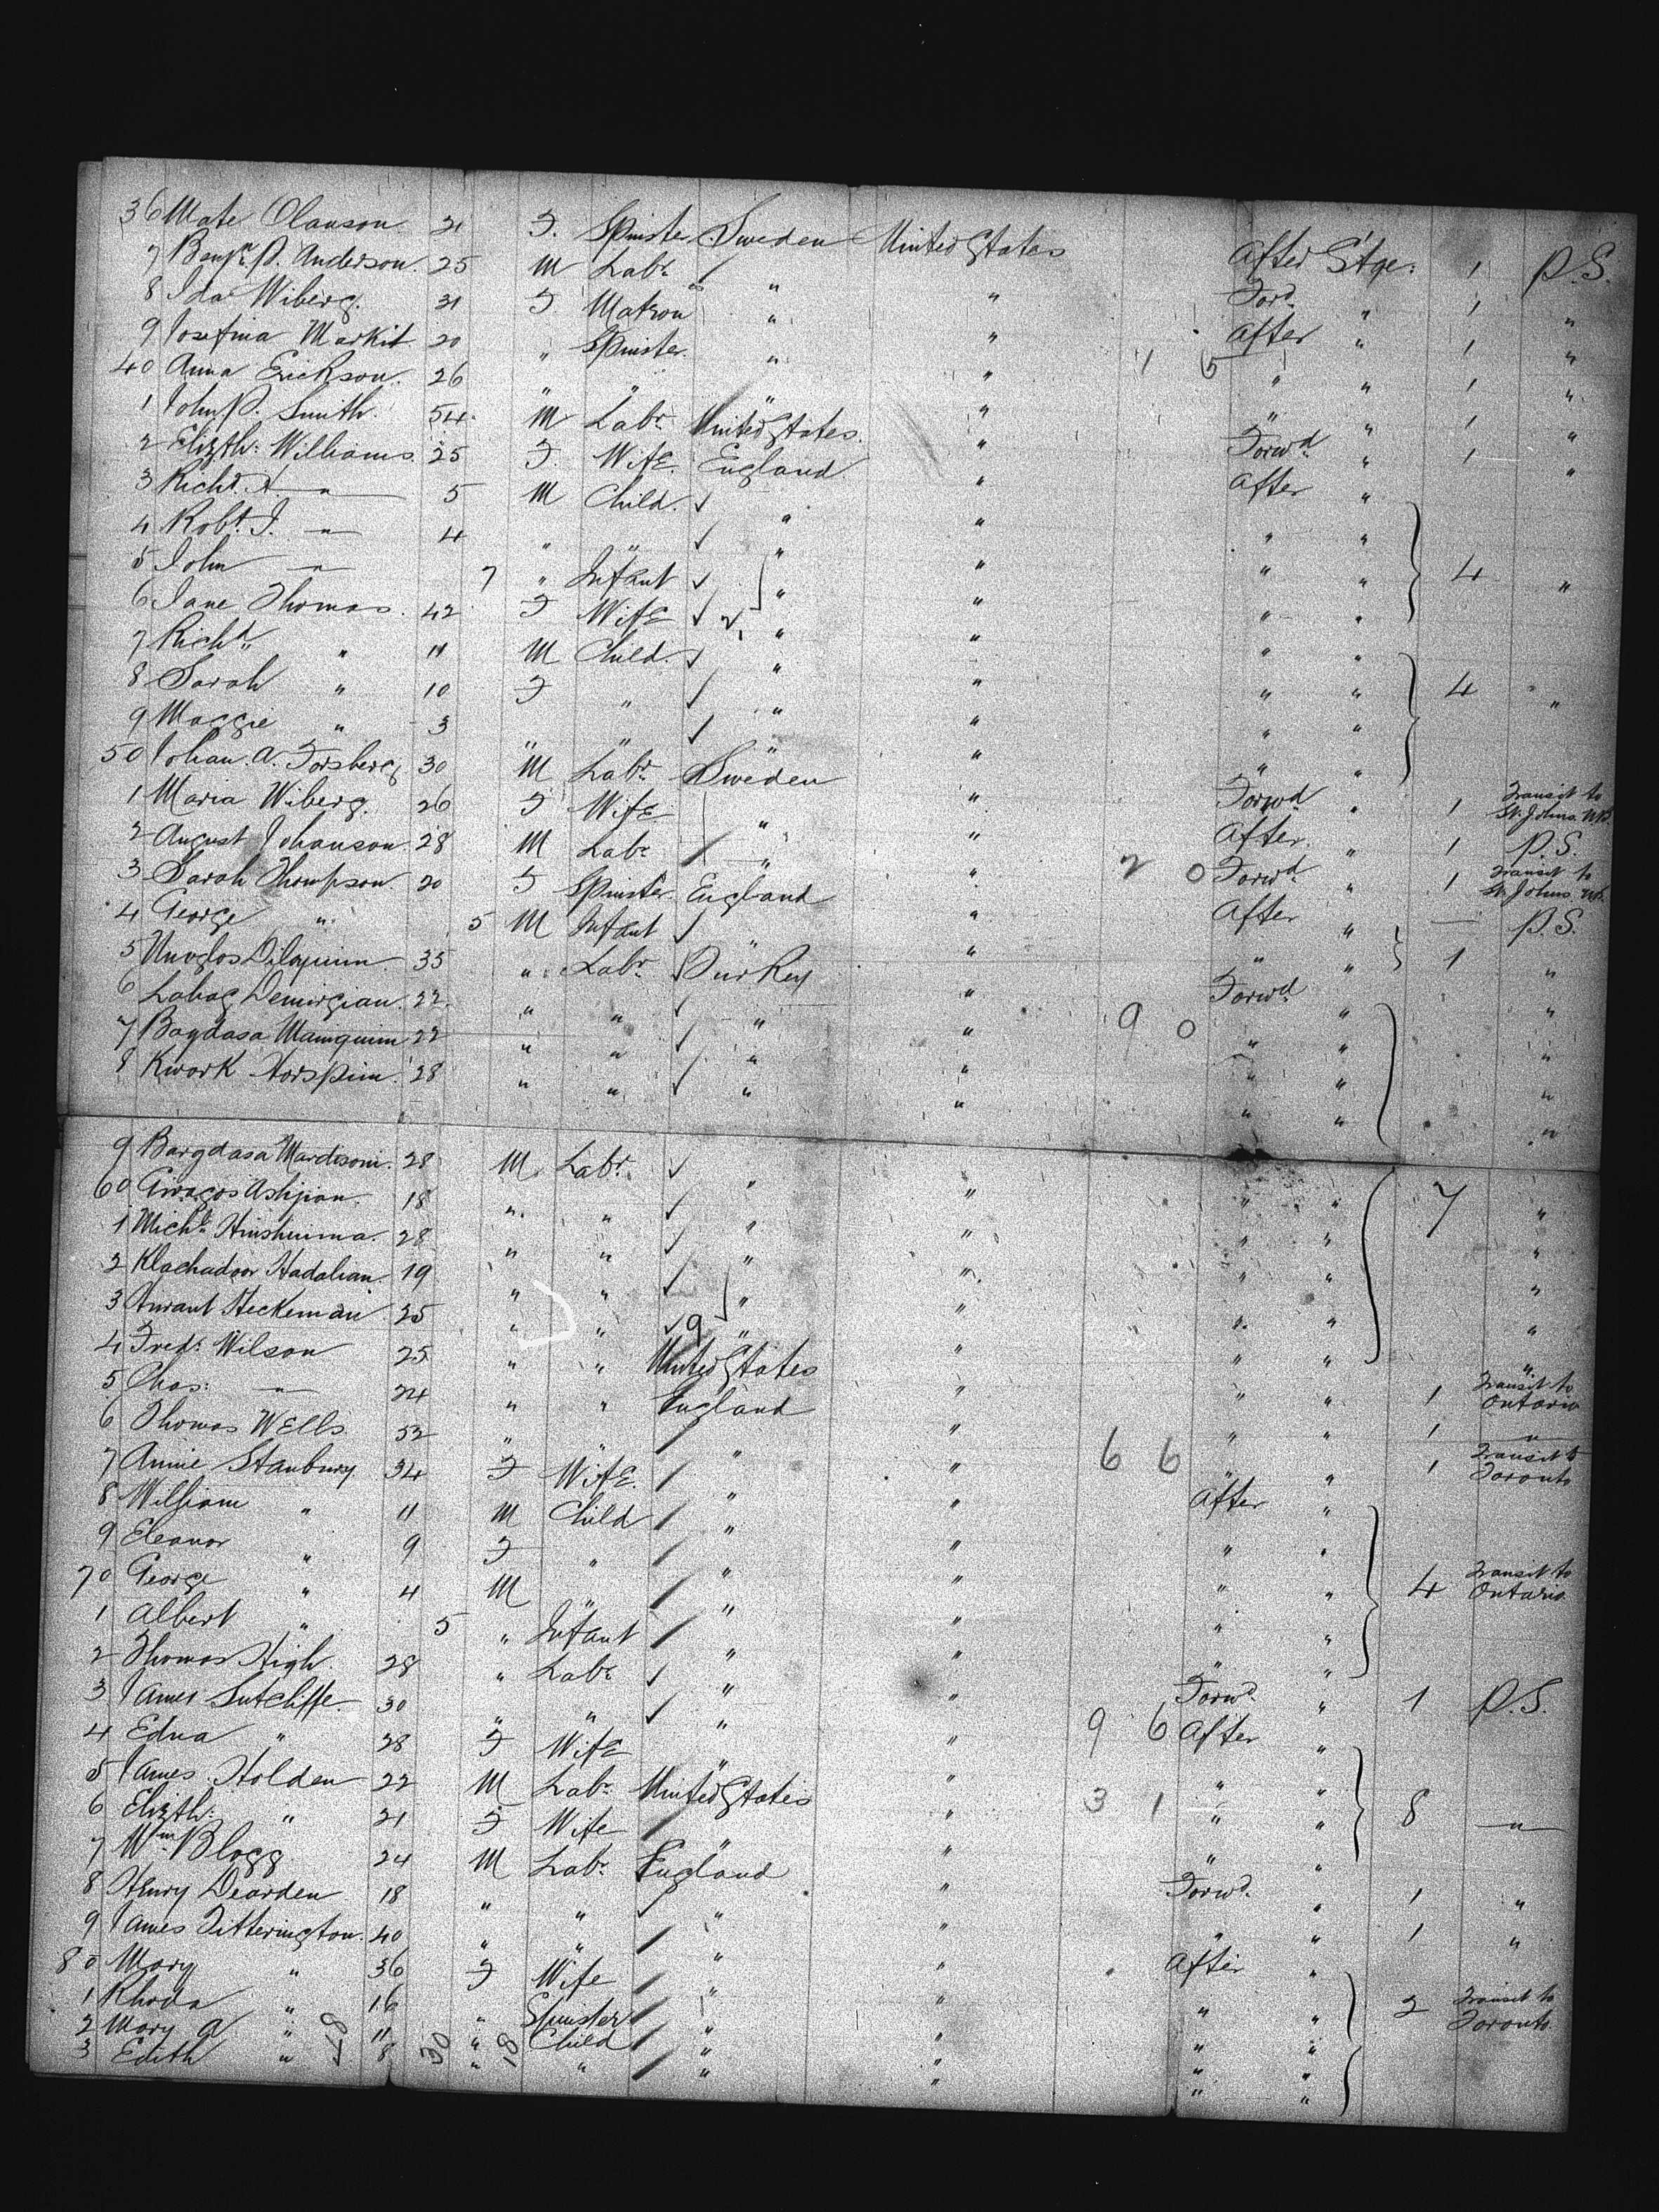 36 Mate Olauson 21 F. Spinster Sweden United States After S'tge. 1 P.S.
7 Benjn. P. Anderson. 25 M Labr. " " Ford. " 1 "
8 Ida Wiberg. 31 F Matron " " After " 1 "
9 Josefina Markit 20 " Spinster. " " 1 5 " " 1 "
40 Anna Erickson. 26 " " " " " " 1 "
1 John P. Smith. 54. M Labr. United States. " Forwd. " 1 "
2 Elizth. Williams. 25 F. Wife. England " After "
3 Richd. A. " 5 M Child. " " " "
4 Robt. J. " 4 " " " " " " 4 "
5 John " 7 " Infant " " " "
6 Jane Thomas. 42 F Wife " " " "
7 Richd. " 11 M Child. " " " "
8 Sarah " 10 F " " " " " 4 "
9 Maggie " 3 " " " " " "
50 Johan. A. Forsberg 30 M Labr. Sweden " Forwd " 1 Transit to St. Johns. NB.
1 Maria Wiberg. 26 F Wife " " After. " 1 P.S.
2 August Johanson 28 M Labr " " 2 0 Forwd. " 1 Transit to St. Johns NB.
3 Sarah Thompson. 20 F Spinster England " After " — P.S.
4 George " 5 M Infant " " " 1 "
5 35 " Labr. Turkey " Forwd. " "
6 Demirgian. 22. " " " " 9 0 " " "
7 Bagdasa 22 " " " " " " "
8 Kwork 28 " " " " " " "
9 Bargdasa 28 M Labr. " " " " 7 "
60 Ashjian. 18 " " " " " " "
1 Michl. 28 " " " " " " "
2 Hadalian. 19 " " " " " " "
3 25 " " 9 " " " " "
4 Fredk. Wilson 25 " " United States " " " 1 Transit to Ontario
5 Chas: " 24 " " England " " " 1 "
6 Thomas Wells 52 " " " " 6 6 " " 1 Transit to Toronto
7 Annie Stanbury 34 F Wife. " " After "
8 William " 11 M Child " " " "
9 Eleanor " 9 F " " " " " 4 Transit to Ontario.
70 George " 4 M " " " " "
1 Albert " 5 " Infant " " " "
2 Thomas High. 28 " Labr. " " Forwd. " 1 P.S.
3 James Sutcliffe. 30 " " " " 9 6 After "
4 Edna " 28 F Wife " " " "
5 James Holden 22 M Labr. United States " 3 1 " " 8 "
6 Elizth: " 21 F Wife " " " "
7 Wm. Blogg 24 M Labr. England " Forwd. " 1 "
8 Henry Dearden 18 " " " " " " 1 "
9 James Titterington. 40 " " " " After "
80 Mary " 36 F Wife " " " " 2 Transit to Toronto.
1 Rhoda " 16 " Spinster " " " "
2 Mary A " 11 " Child " " " "
3 Edith " 8 " " " " " "